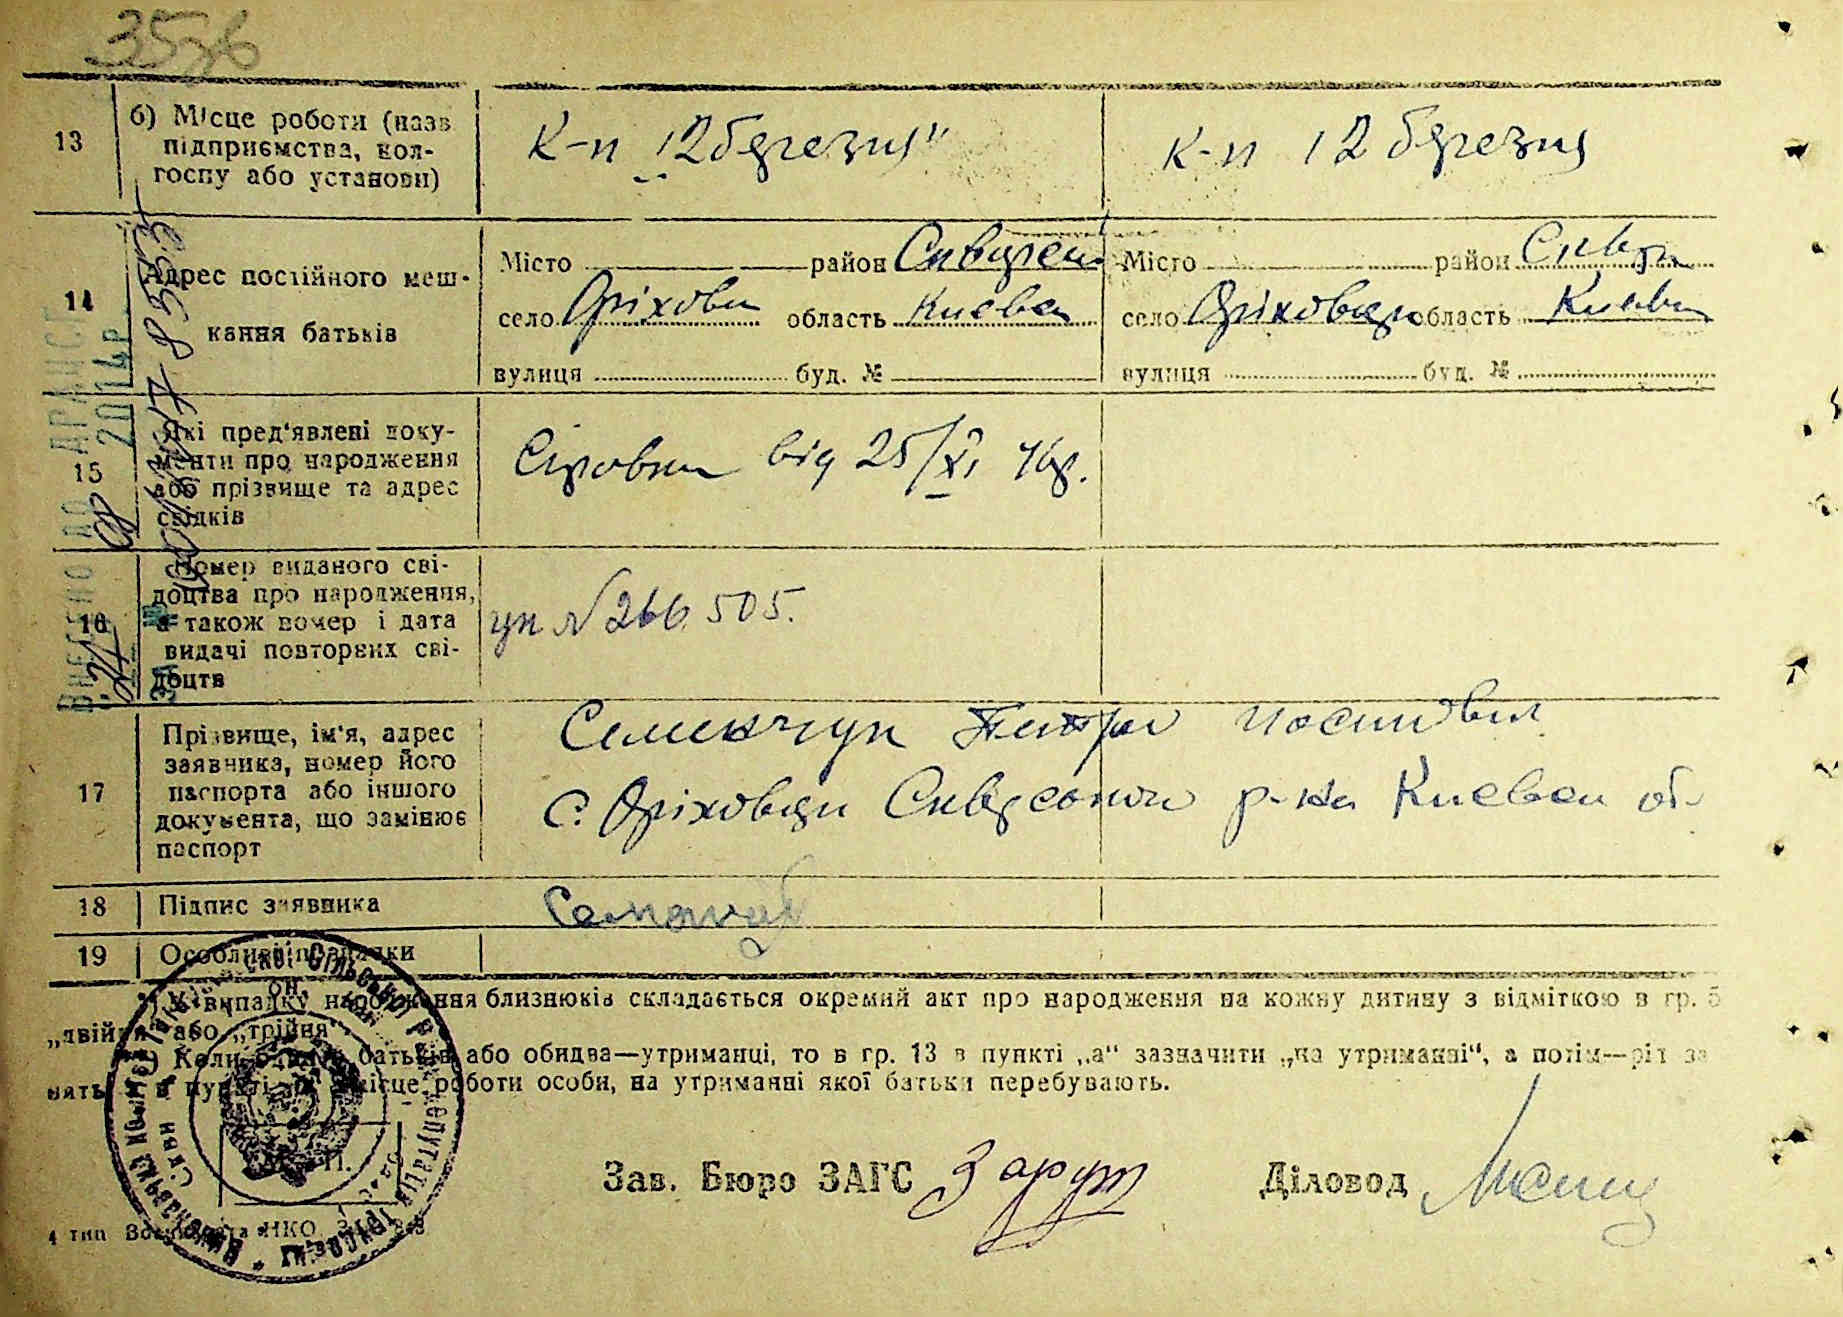 13
б) Місце роботи (назв
підприємства, кол-
госпу або установи)
К-п „12 березня"
К-п 12 березня
14
Адрес постійного меш-
кання батьків
Місто район Сквирськ
село Оріхови область Києвс
вулиця буд. №
Місто район Сквир
село Оріховци область Київ
вулиця буд. №
15
Які пред'явлені доку-
менти про народження
або прізвище та адрес
свідків
від 25/XI 46р.
16
Номер виданого сві-
доцтва про народження,
а також номер і дата
видачі повторних сві-
доцтв
№ 266.505.
17
Прізвище, ім'я, адрес
заявника, номер його
паспорта або іншого
документа, що замінює
паспорт
Семенчук Петро
с. Оріховци р-на Києвск об.
18
Підпис заявника
19
Особливі
*) У випадку народження близнюків складається окремий акт про народження на кожну дитину з відміткою в гр. 5
„двійня" або „трійня".
Коли батьків або обидва—утриманці, то в гр. 13 в пункті „а" зазначити „на утриманні", а потім—рід за
нять в пункті місце роботи особи, на утриманні якої батьки перебувають.
М. П.
Зав. Бюро ЗАГС
Діловод
4 тип НКО
ВНЕСЕНО ДО ДРАЦСГ
2014р